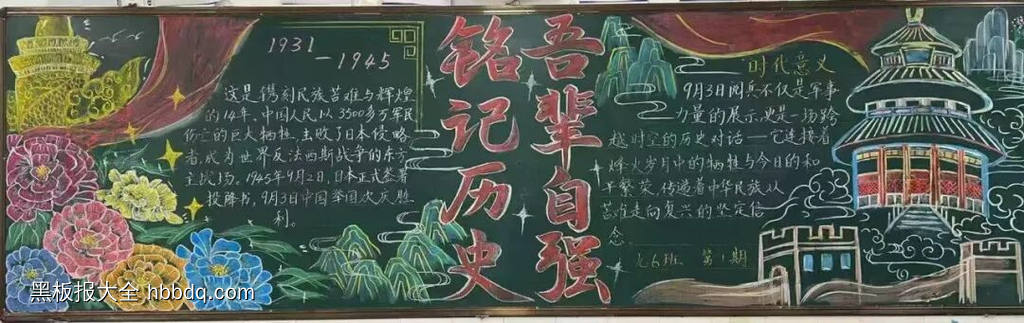 1931
—1945
这是镌刻民族苦难与辉煌
的14年，中国人民以3500多万军民
伤亡的巨大牺牲，击败了日本侵略
者，成为世界反法西斯战争的东方
主战场。1945年9月2日，日本正式签署
投降书，9月3日中国举国欢庆胜
利。
铭记历史
吾辈自强
时代意义
9月3日阅兵不仅是军事
力量的展示，更是一场跨
越时空的历史对话——它连接着
烽火岁月中的牺牲与今日的和
平繁荣，传递着中华民族从
苦难走向复兴的坚定信
念。
七6班 第1期
黑板报大全 hbbdq.com